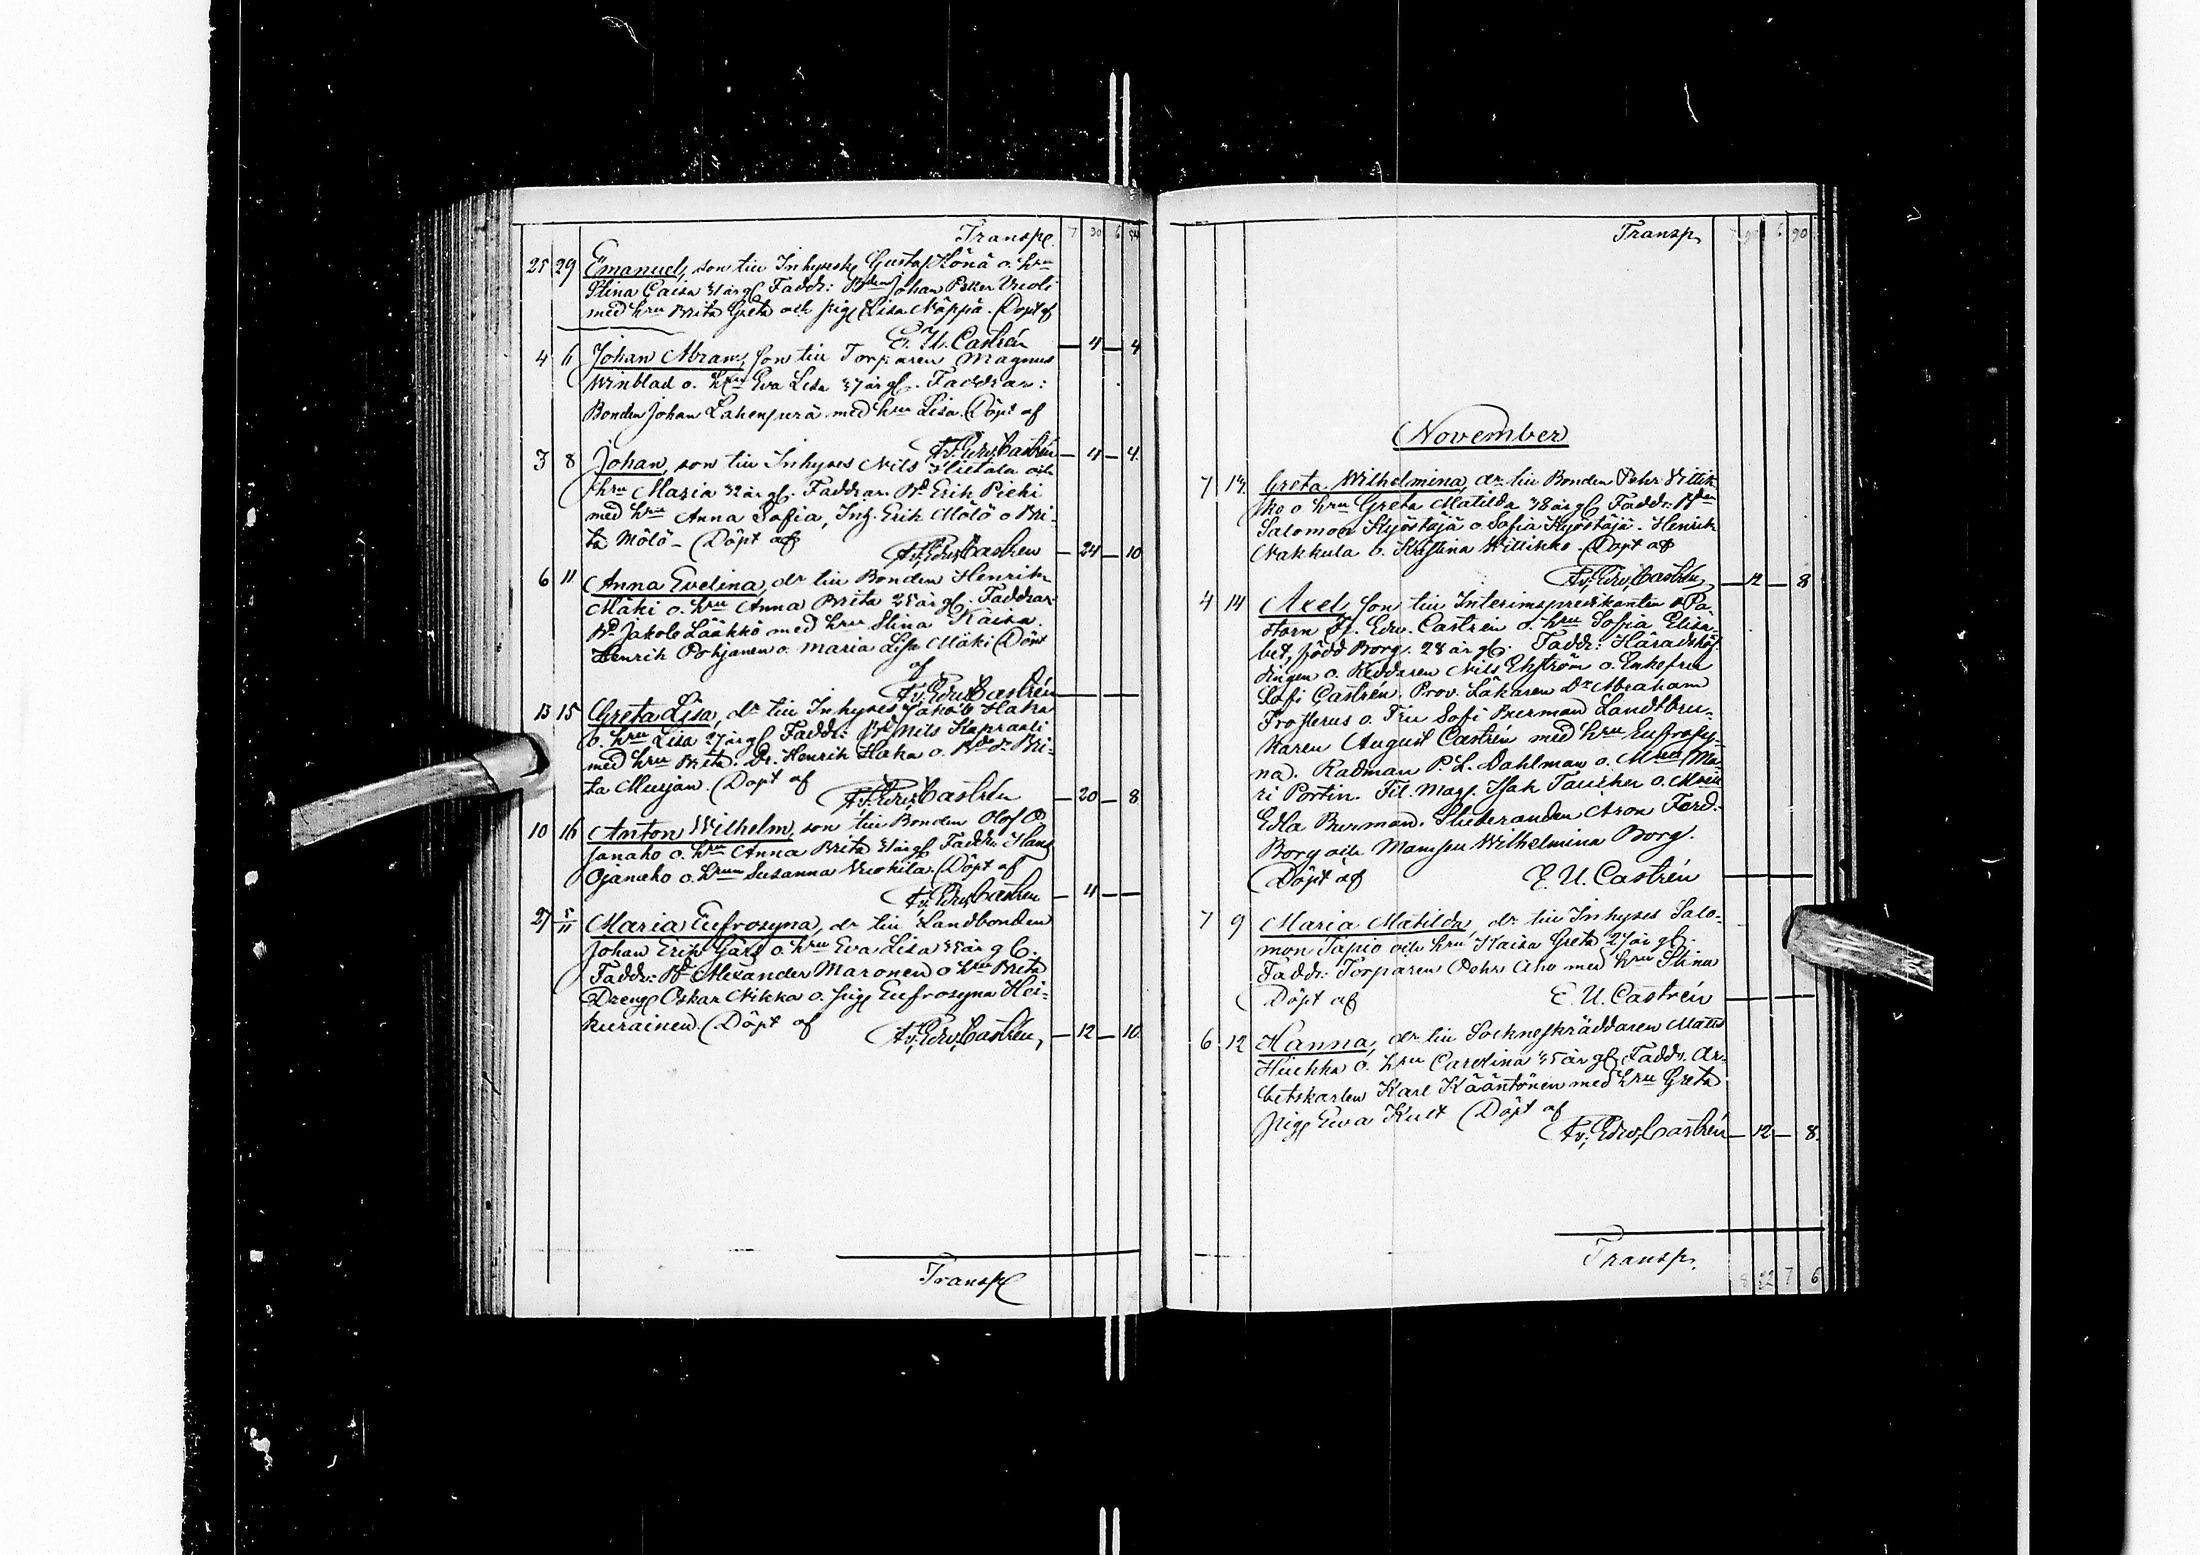 Transp. 7 30 6 54
25 29 Emanuel, son till Inhyses Gustaf Könä o. hru
Stina Caisa 31 år gl. Faddr: Bden Johan Peter
med hru Brita Greta och pig. Lisa Näppä. Döpt af
E. U. Castrén — 4 — 4
4 6 Johan Abram, son till Torparen Magnus
Winblad o. hru Eva Lisa 37 år gl. Faddrar:
Bonden Johan Lahenperä med hru Lisa. Döpt af
Fr. Edv. Castrén — 4 — 4
3 8 Johan, son till Inhyses Nils Hietala och
hru Maria 32 år gl. Faddrar Bd. Erik Piehi
med hru Anna Sofia, Inh. Erik Mölö o Bri-
ta Mölö — Döpt af
Fr. Edv. Castrén — 24 — 10
6 11 Anna Evelina, dr till Bonden Henrik
Mäki o. hru Anna Brita 25 år gl. Faddrar
Bd. Jakob Lääkkö med hru Stina Kaisa.
Henrik Pohjanen o. Maria Lisa Mäki Döpt
af
Fr. Edv. Castrén — — —
13 15 Greta Lisa, dr till Inhyses Jakob Haka
o. hru Lisa 27 år gl Faddr: Bd. Nils Kapraali
med hru Brita. Dr. Henrik Haka o. Bde dr Bri-
ta Marjan. Döpt af
Fr. Edv. Castrén — 20 — 8
10 16 Anton Wilhelm, son till Bonden Olof O-
janaho o. hru Anna Brita 31 år gl Faddr: Hans
Ojanaho o. hrun Susanna Döpt af
Fr. Edv. Castrén — 4 — —
27 5/11 Maria Eufrosyna, dr till Landbonden
Johan Erik o. hru Eva Lisa 35 år gl.
Faddr: Bd. Alexander Maronen o hru Brita
Dreng. Oskar Nikka o. pig. Eufrosyna Hei-
kurainen. Döpt af
Fr. Edv. Castrén, — 12 — 10
Transp.
Transp. 6 90
November
7 14 Greta Wilhelmina, dr till Bonden Pehr Wittik-
ko o hru Greta Matilda 38 år gl. Faddr: Bden
Salomon Kyöstäjä o. Sofia Kyöstäjä. Henrik
Nakkula o. Kristina Wittikko. Döpt af
Fr. Edv. Castrén — 12 — 8
4 14 Axel, son till Interimspredikanten o Pa-
storn Fr. Edv. Castrén o. hru Sofia Elisa-
bet, född Borg. 28 år gl. Faddr: Häradshöf-
dingen o. Riddaren Nils Ekström o. Enkefru
Sofi Castrén. Prov. Läkaren Dr Abraham
Frosterus o. Fru Sofi Burman Landtbru-
karen August Castrén med hru Eufrosy-
na. Rådman P. L. Dahlman o. Mad. Ma-
ri Portin. Fil. Mag. Isak Taucher o. Mlle
Edla Burman. Studeranden Aron Ferd.
Borg och Mamsell Wilhelmina Borg.
Döpt af E. U. Castrén — — —
7 9 Maria Matilda, dr till Inhyses Salo-
mon Tapio och hru Kaisa Greta 27 år gl.
Faddr: Torparen Pehr Aho med hru Stina
Döpt af E. U. Castrén — — —
6 12 Hanna, dr till Sockneskräddaren Matts
Hiukka o. hru Carolina 35 år gl. Faddr. Ar-
betskarlen Karl Kääntönen med hru Greta
pig. Eva Kult Döpt af
Fr. Edv. Castrén — 12 — 8
Transp. 8 22 7 6